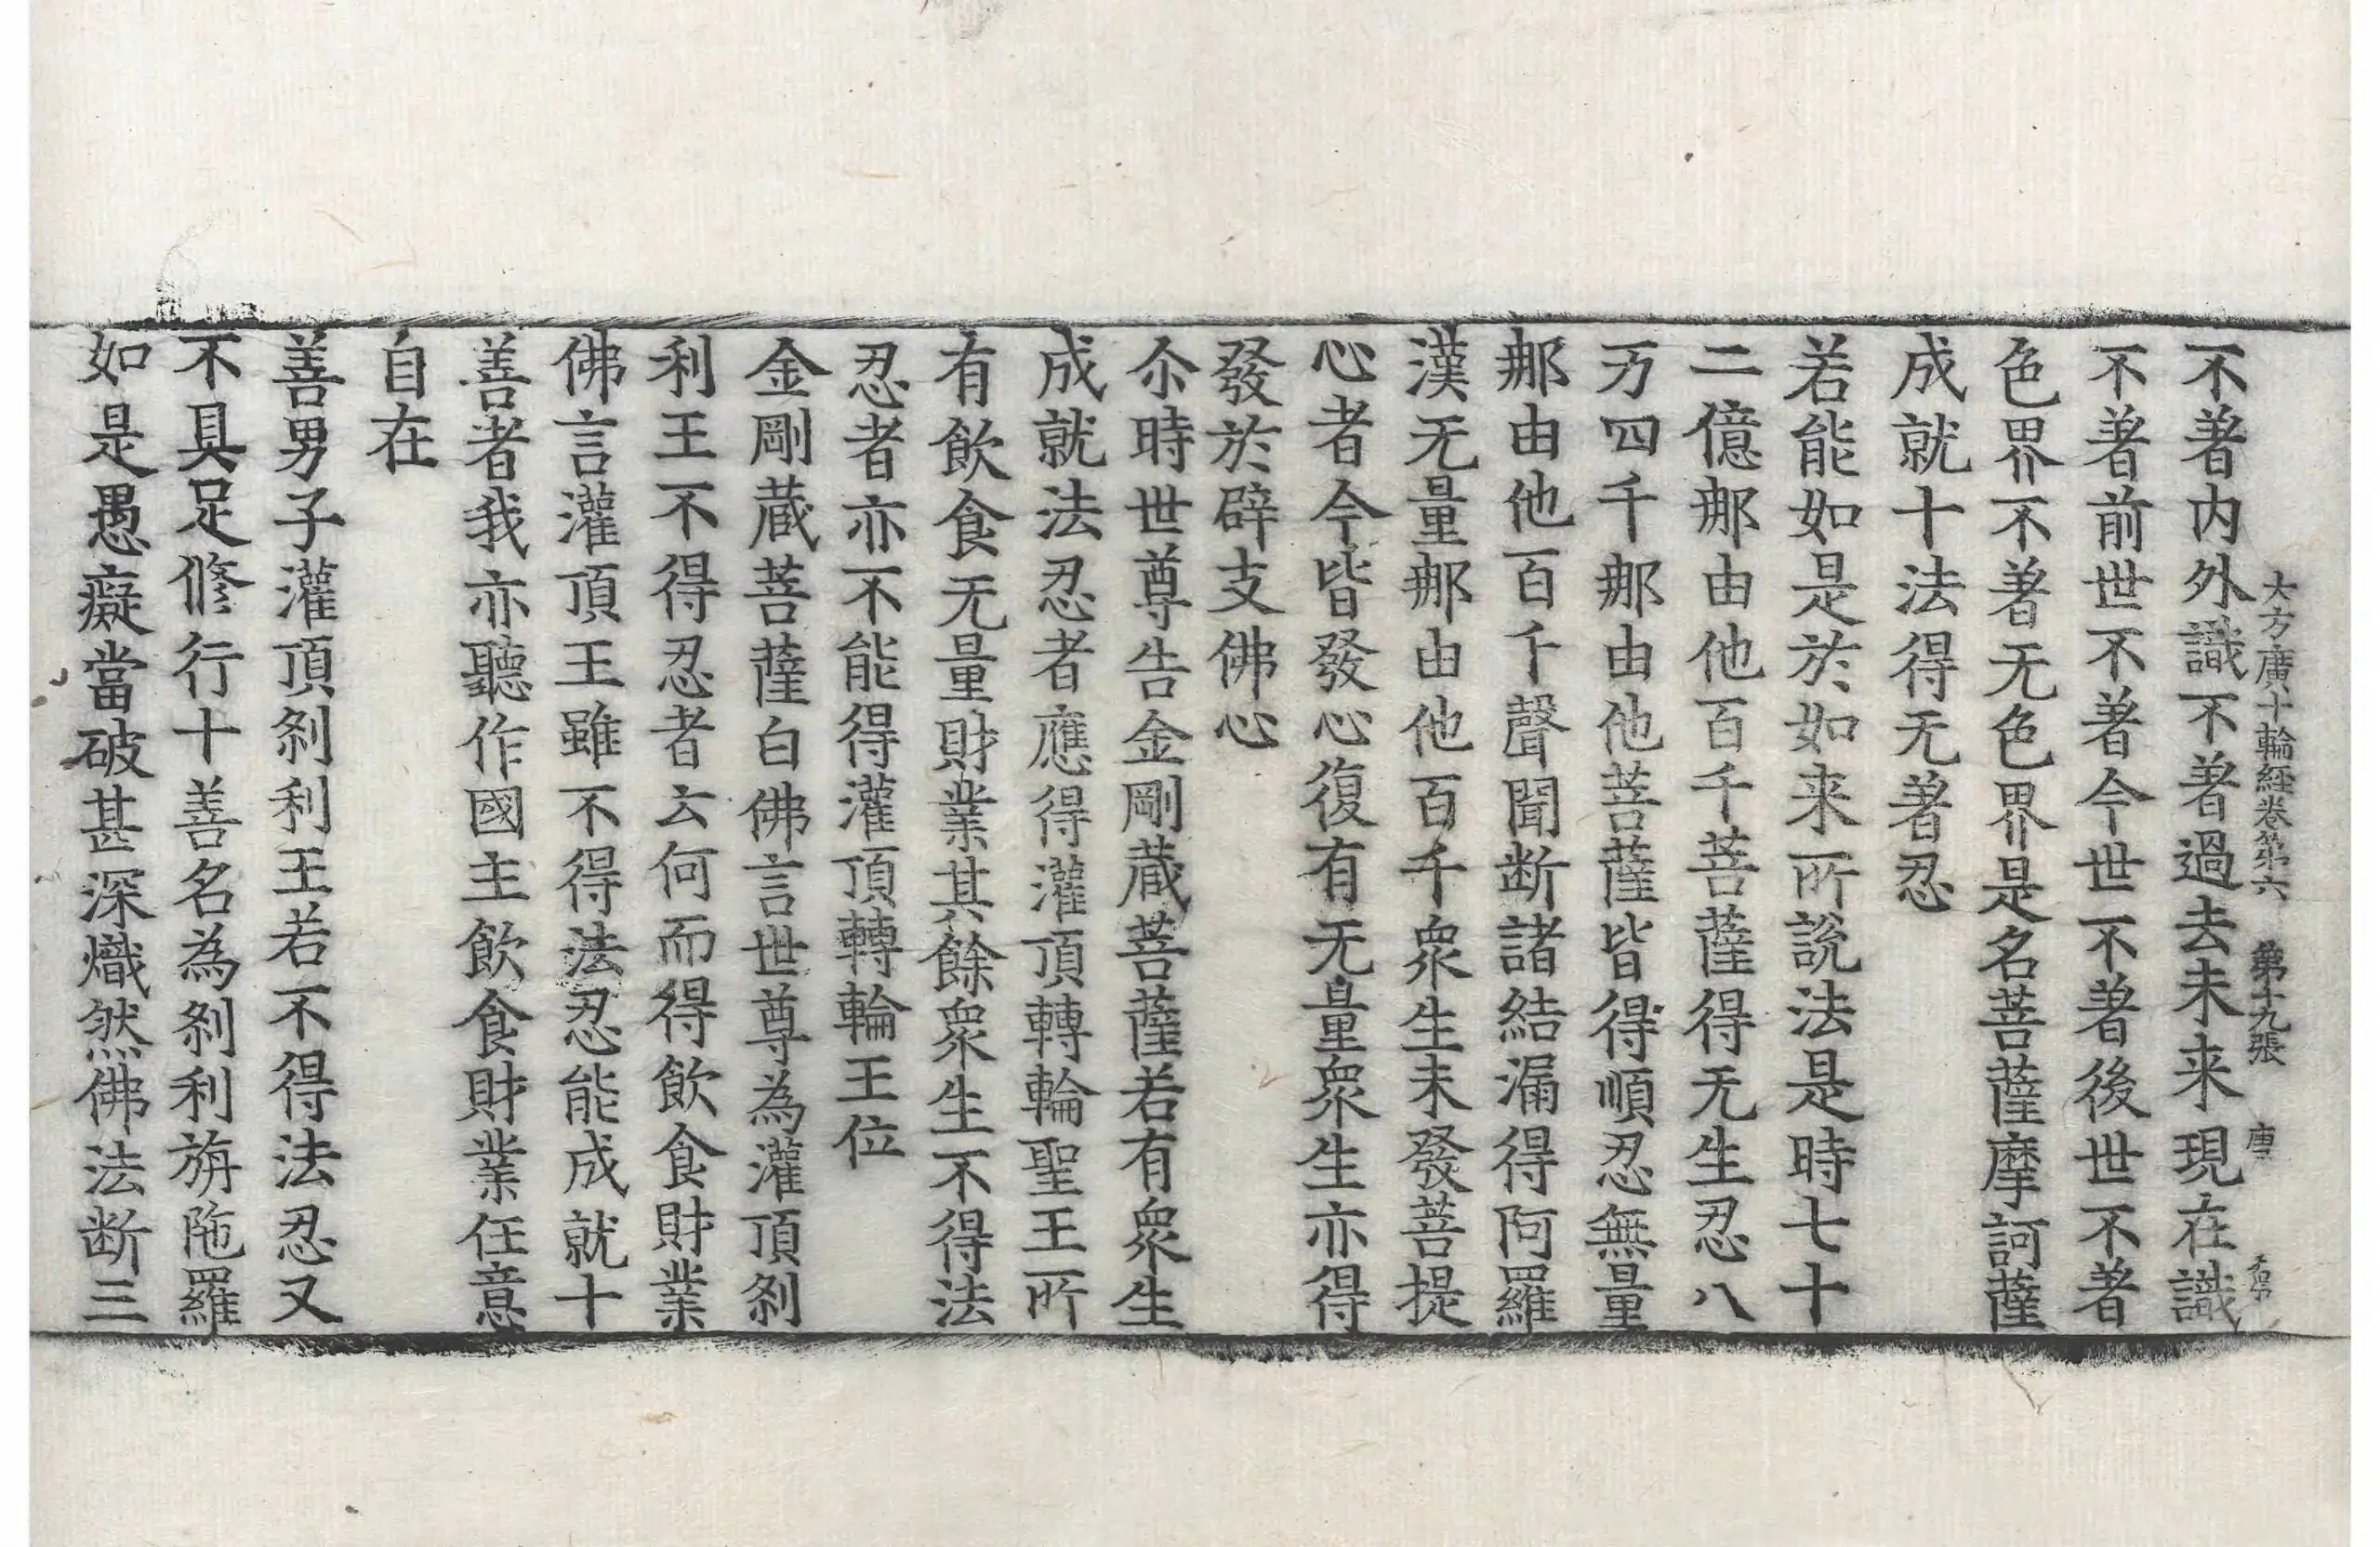 大方廣十輪經卷第六 第十九張 唐
不著内外識不著過去未来現在識
不著前世不著今世不著後世不著
色界不著无色界是名菩薩摩訶薩
成就十法得无著忍
若能如是於如来所説法是時七十
二億那由他百千菩薩得无生忍八
万四千那由他菩薩皆得順忍無量
那由他百千聲聞断諸結漏得阿羅
漢无量那由他百千衆生未發菩提
心者今皆發心復有无量衆生亦得
發於辟支佛心
尒時世尊告金剛蔵菩薩若有衆生
成就法忍者應得灌頂轉輪聖王所
有飲食无量財業其餘衆生不得法
忍者亦不能得灌頂轉輪王位
金剛蔵菩薩白佛言世尊為灌頂刹
利王不得忍者云何而得飲食財業
佛言灌頂王雖不得法忍能成就十
善者我亦聽作國主飲食財業任意
自在
善男子灌頂刹利王若不得法忍又
不具足修行十善名為刹利旃陁羅
如是愚癡當破甚深熾然佛法断三